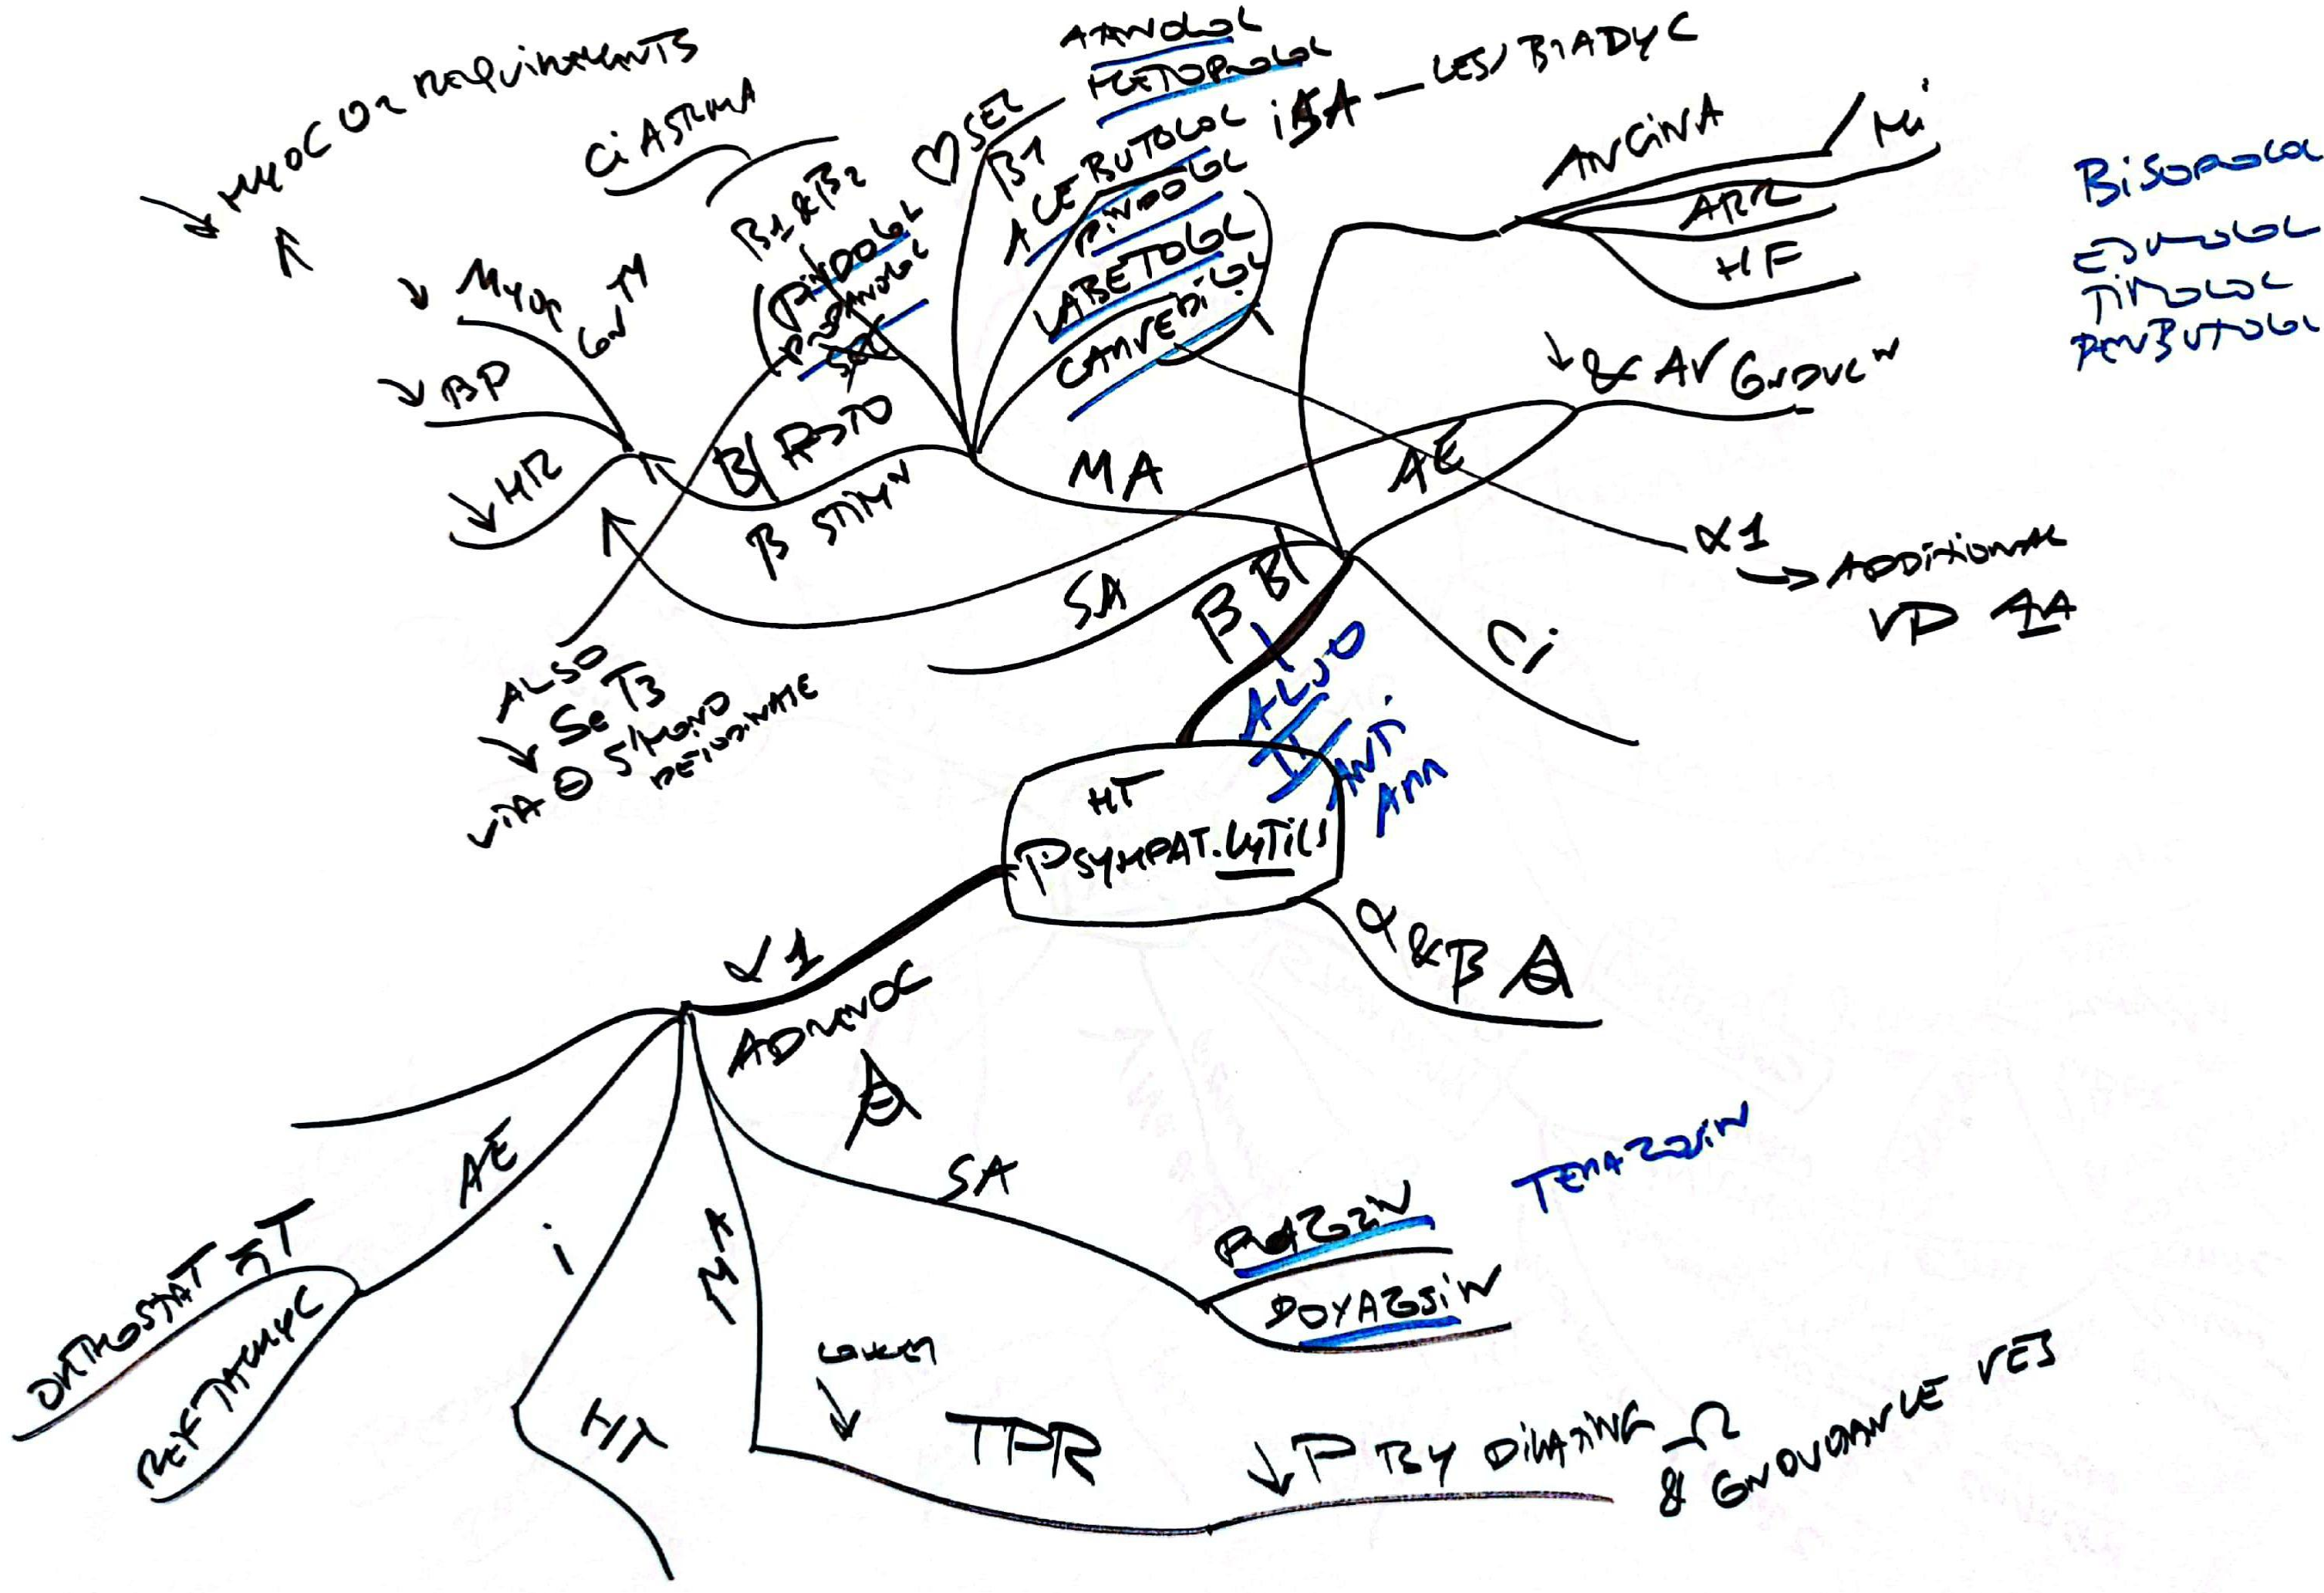 ↓ MYOC O2 REQUIREMENTS
↑
Ci ASTHMA
B1 & B2
PINDOLOL
♡ SEL
B1
ATANOLOL
METOPROLOL
ACEBUTOLOL
PINDOLOL
LABETOLOL
CARVEDILOL
ISA — LESS BRADYC
ANGINA
Mi
ARR
HF
BISOPROLOL
ESMOLOL
TIMOLOL
PENBUTOLOL
↓ MYOC CONTN
↓ BP
↓ HR
B/
β STIMN
MA
↓ & AV CONDUCN
AE
α1
→ ADDITIONAL
VD
SA
β Bl
Ci
ALSO
↓ Se T3
VIA ⊖ 5'MONO
DEIODINATE
ALSO
II
ANTI
ARR
HT
PSYMPAT.LYTICS
α & β
α1
ADRENOC
SA
TERAZOSIN
PRAZOSIN
DOXAZOSIN
AE
ORTHOSTAT HT
REF TACHYC
i
HT
MA
LOWER
↓ TPR
↓ P BY DILATING Ω
& CONDUCTANCE VES